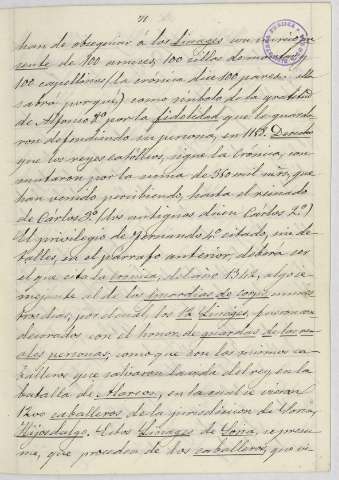 71
han de obsequiar á los Linages con
cente de 100 arneses, 100 sillas domadas y
100 capellinas (la crónica dice 100 pares
sabrá porque) como símbolo de la gratitud
de Alfonso 8º por la fidelidad que le guarda-
ron defendiendo su persona, en 1185. Derecho
que los reyes católicos, sigue la Crónica, con-
mutaron por la suma de 380 mil mrs, que
han venido percibiendo, hasta el reinado
de Carlos 3º (los antiguos dicen Cárlos 2º)
El privilegio de Fernando 4º citado, sin de-
talles, en el párrafo anterior, debera ser
el que cita la Cronica, del año 1342, algo se-
mejante al de los Guardias de corps, en nues-
tros dias, por el cual, los 12 Linages, fueron con-
decorados con el honor de guardas de las re-
ales personas, como que son los mismos ca-
balleros que salvaron la vida del rey, en la
batalla de Alarcos, en la cual se vieron
caballeros de la jurisdiccion de Soria,
Hijosdalgo. Estos Linages de Soria, se presu-
me, que proceden de dos caballeros, que vi-